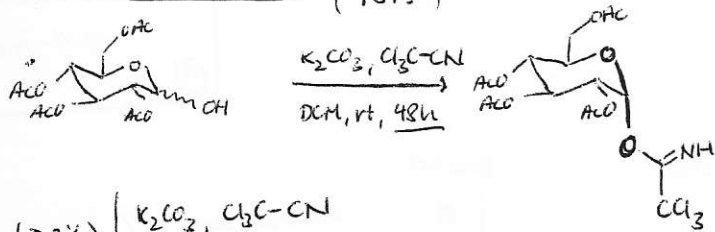 OAC
O
ACO
ACO
ACO
OH
K₂CO₃, Cl₃C-CN
DCM, rt, 48h
OAC
O
ACO
ACO
ACO
O
NH
CCl₃
K₂CO₃, Cl₃C-CN